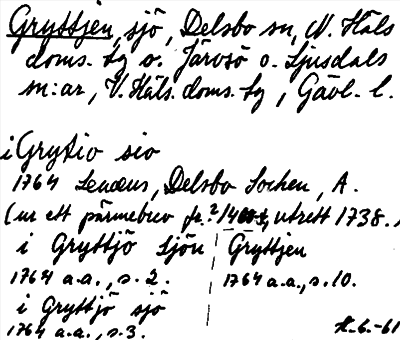 Gryttjen, sjö, Delsbo sn, N. Häls
doms. tg o. Järvsö o. Ljusdals
sn:ar, V. Häls. doms. tg, Gävl. l.
i Grytio sio
1764 Lenæus, Delsbo Sochen, A.
(ur ett pärmebrev fr. ? utrett 1738.)
i Gryttjö Sjön
1764 a.a., s. 2.
Gryttjen
1764 a.a., s. 10.
i Gryttjö sjö
1764 a.a., s. 3.
-61